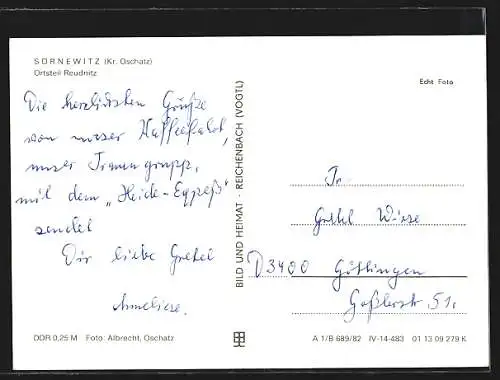 SORNEWITZ (Kr. Oschatz)
Ortsteil Reudnitz
Echt Foto
Die herzlichsten Grüße
von unser Kaffeefahrt,
unser Frauengrupp,
mit dem „Heide-Expreß"
sendet
Dir liebe Gretel
Anneliese.
BILD UND HEIMAT · REICHENBACH (VOGTL)
Fr.
Gretel Wiese
D3400 Göttingen
Goßlerstr. 51.
DDR 0,25 M Foto: Albrecht, Oschatz
A 1/B 689/82 IV-14-483 01 13 09 279 K